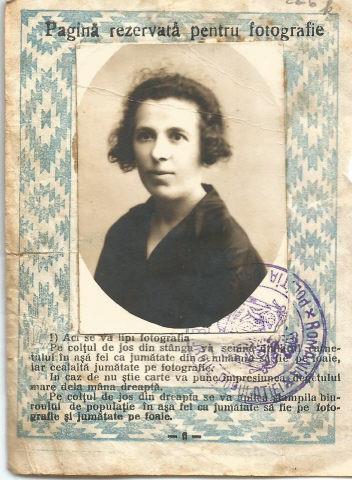 Pagină rezervată pentru fotografie
1) Aci se va lipi fotografia
Pe colțul de jos din stânga va semna
tului în așă fel ca jumătate din să fie pe foaie,
iar cealaltă jumătate pe fotografie.
In caz de nu știe carte va pune impresiunea degetului
mare dela mâna dreaptă.
Pe colțul de jos din dreapta se va aplica ștampila biu-
roului de populație în așa fel ca jumătate să fie pe foto-
grafie și jumătate pe foaie.
— 6 —
POLIȚIA